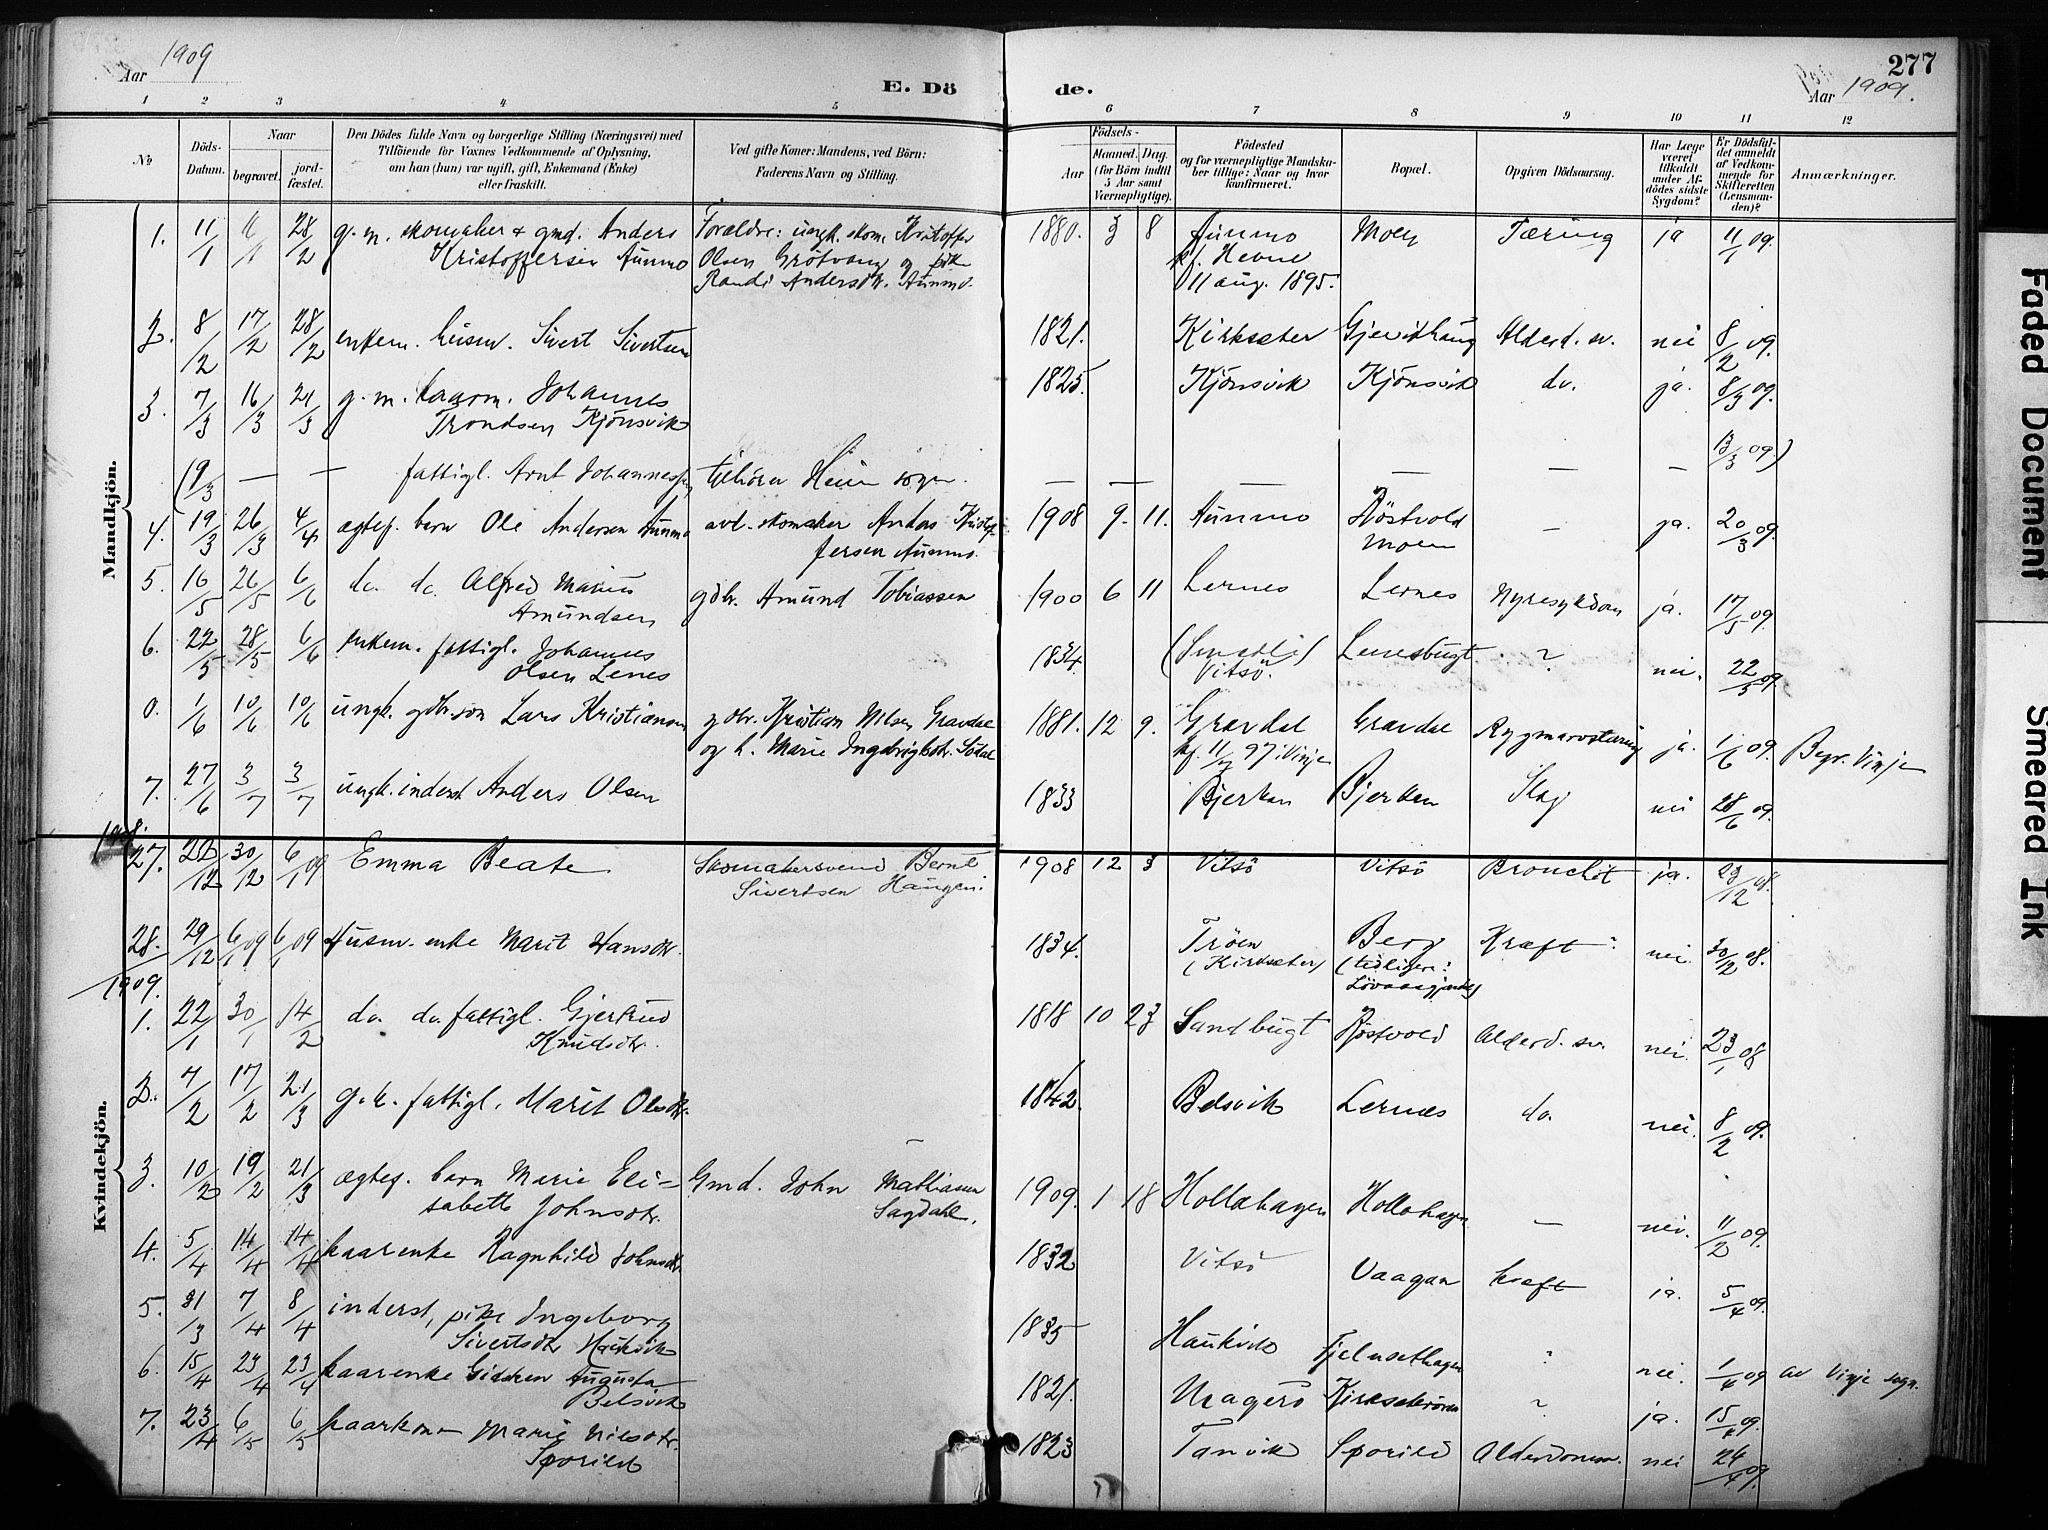 Aar 1909
E. Dö
de.
277
Aar 1909.
1 2 3 4 5 6 7 8 9 10 11 12
No
Döds-Datum.
Naar
begravet.
jord-fæstet.
Den Dödes fulde Navn og borgerlige Stilling (Næringsvei) med
Tilföiende for Voxnes Vedkommende af Oplysning,
om han (hun) var ugift, gift, Enkemand (Enke)
eller fraskilt.
Ved gifte Koner: Mandens, ved Börn:
Faderens Navn og Stilling.
Födsels-
Aar
Maaned. Dag.
(for Börn indtil
5 Aar samt
Værnepligtige).
Födested
og for værnepligtige Mandska-
ber tillige: Naar og hvor
konfirmeret.
Bopæl.
Opgiven Dödsaarsag.
Har Læge
været
tilkaldt
under Af-
dödes sidste
Sygdom?
Er Dödsfal-
det anmeldt
af Vedkom-
mende for
Skifteretten
(Lensman-
den)?
Anmærkninger.
Mandkjön.
1. 11/1 28/2 g. m. skomaker & gmd. Anders Forældre: ungk. skom. Kristoffer 1880. 3 8 Aunmo Moen Tæring ja 11/1 09.
Kristoffersen Aunmo Olsen Grötvang og pike kf. Hevne
Randi Andersdtr. Aunmo. 11 aug. 1895.
2. 8/2 17/2 28/2 enkem. husm. Sivert Sivertsen 1821. Kirksæter Gjevikhaug Alderd. sv. nei 8/2 09.
3. 7/3 16/3 21/3 g. m. kaarm. Johannes 1825 Kjönsvik Kjönsvik do. ja. 8/3 09.
Trondsen Kjönsvik
(9/3 — — fattigl. Arnt Johannessen tilhörer Heim sogn. — — — — — 13/3 09)
4. 19/3 26/3 4/4 ægtef. barn Ole Andersen Aunmo avl. skomaker Anders Kristof- 1908 9. 11. Aunmo Röstvold — ja. 20/3 09.
fersen Aunmo. Moen
5. 16/5 26/5 6/6 do. do. Alfred Marius gbr. Amund Tobiassen 1900 6 11 Lernes Lernes Nyresykdom ja. 17/5 09.
Amundsen
6. 22/5 28/5 6/6 enkem. fattigl. Johannes 1834. Vitsö. Lenesbugt ? nei. 22/5 09.
Olsen Lenes
0. 1/6 10/6 10/6 ungk. gbr.sön Lars Kristiansen gbr. Kristian Nilsen Gravdal 1881. 12 9. Gravdal Gravdal Rygmarvstæring ja. 1/6 09. Begr. Vinje
og h. Marie Ingebrigtsdtr. Södal kf. 97 i Vinje
7. 27/6 3/7 3/7 ungk. inderst Anders Olsen 1833 Bjerkan Bjerken Slag nei 28/6 09.
Kvindekjön.
1908.
27. 22/12 30/12 6/1 09 Emma Beate Skomakersvend Bernt 1908 12 3 Vitsö Vitsö Bronchit ja. 23/12 08.
Sivertsen Haugen.
28. 29/12 6/1 09 6/1 09 Husm. enke Marit Hansdtr. 1834. Tröen Berg Kræft nei. 30/12 08.
(Kirksæter) (tidligere:
1909.
1. 22/1 30/1 14/2 do. do. fattigl. Gjertrud 1818 10 23 Sandbugt Röstvold Alderd. sv. nei. 23/1 08
Knudsdtr.
2. 7/2 17/2 21/3 g. k. fattigl. Marit Olsdtr. 1842. Belsvik Lernæs do. nei. 8/2 09.
3. 10/2 19/2 21/3 ægtef. barn Marie Eli- Gmd. John Mathiasen 1909. 1 18 Hollahagen Hollahagen — nei. 11/2 09.
sabeth Johnsdtr. Sagdahl.
4. 5/4 14/4 14/4 kaarenke Ragnhild Johnsdtr. 1832 Vitsö Vaagan kræft ja. 5/4 09.
5. 31/3 7/4 8/4 inderst, pike Ingeborg 1835 Haukvik Fjelnsethagen ? nei. 1/4 09 av Vinje sogn.
Sivertsdtr. Haukvik
6. 15/4 23/4 23/4 kaarenke Gidsken Augusta 1821. Magerö Kirksæterören ? ja. 15/4 09.
Belsvik
7. 23/4 6/5 6/5 kaarkone Marie Nilsdtr. 1823 Tanvik Sporild Alderdomsv. nei 24/4 09.
Sporild
Faded Document
Smeared Ink